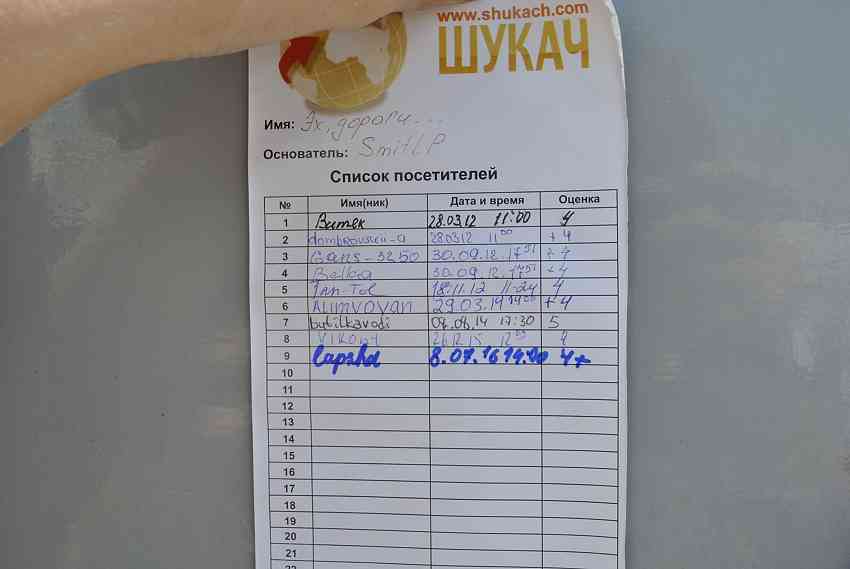 www.shukach.com
ШУКАЧ
Имя: Эх, дороги...
Основатель: SmitLP
Список посетителей
№ Имя(ник) Дата и время Оценка
1 Витек 28.03.12 11:00 4
2 dombrovskii-a 28.03.12 11 00 +4
3 Gans-3250 30.09.12 17 51 +4
4 Belka 30.09.12 17 51 +4
5 Tan-Tol 18.11.12 11-24 4
6 ALIMVOVAN 29.03.14 14 00 +4
7 butilkavodi 04.08.14 17:30 5
8 26.12.15 4
9 lapsha 8.07.16 14.00 4+
10
11
12
13
14
15
16
17
18
19
20
21